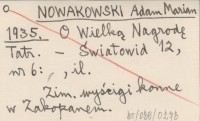 NOWAKOWSKI Adam Marian
1935. O Wielką Nagrodę
Tatr. – Światowid 12,
nr 6: , , il.
Zim. wyścigi konne
w Zakopanem.